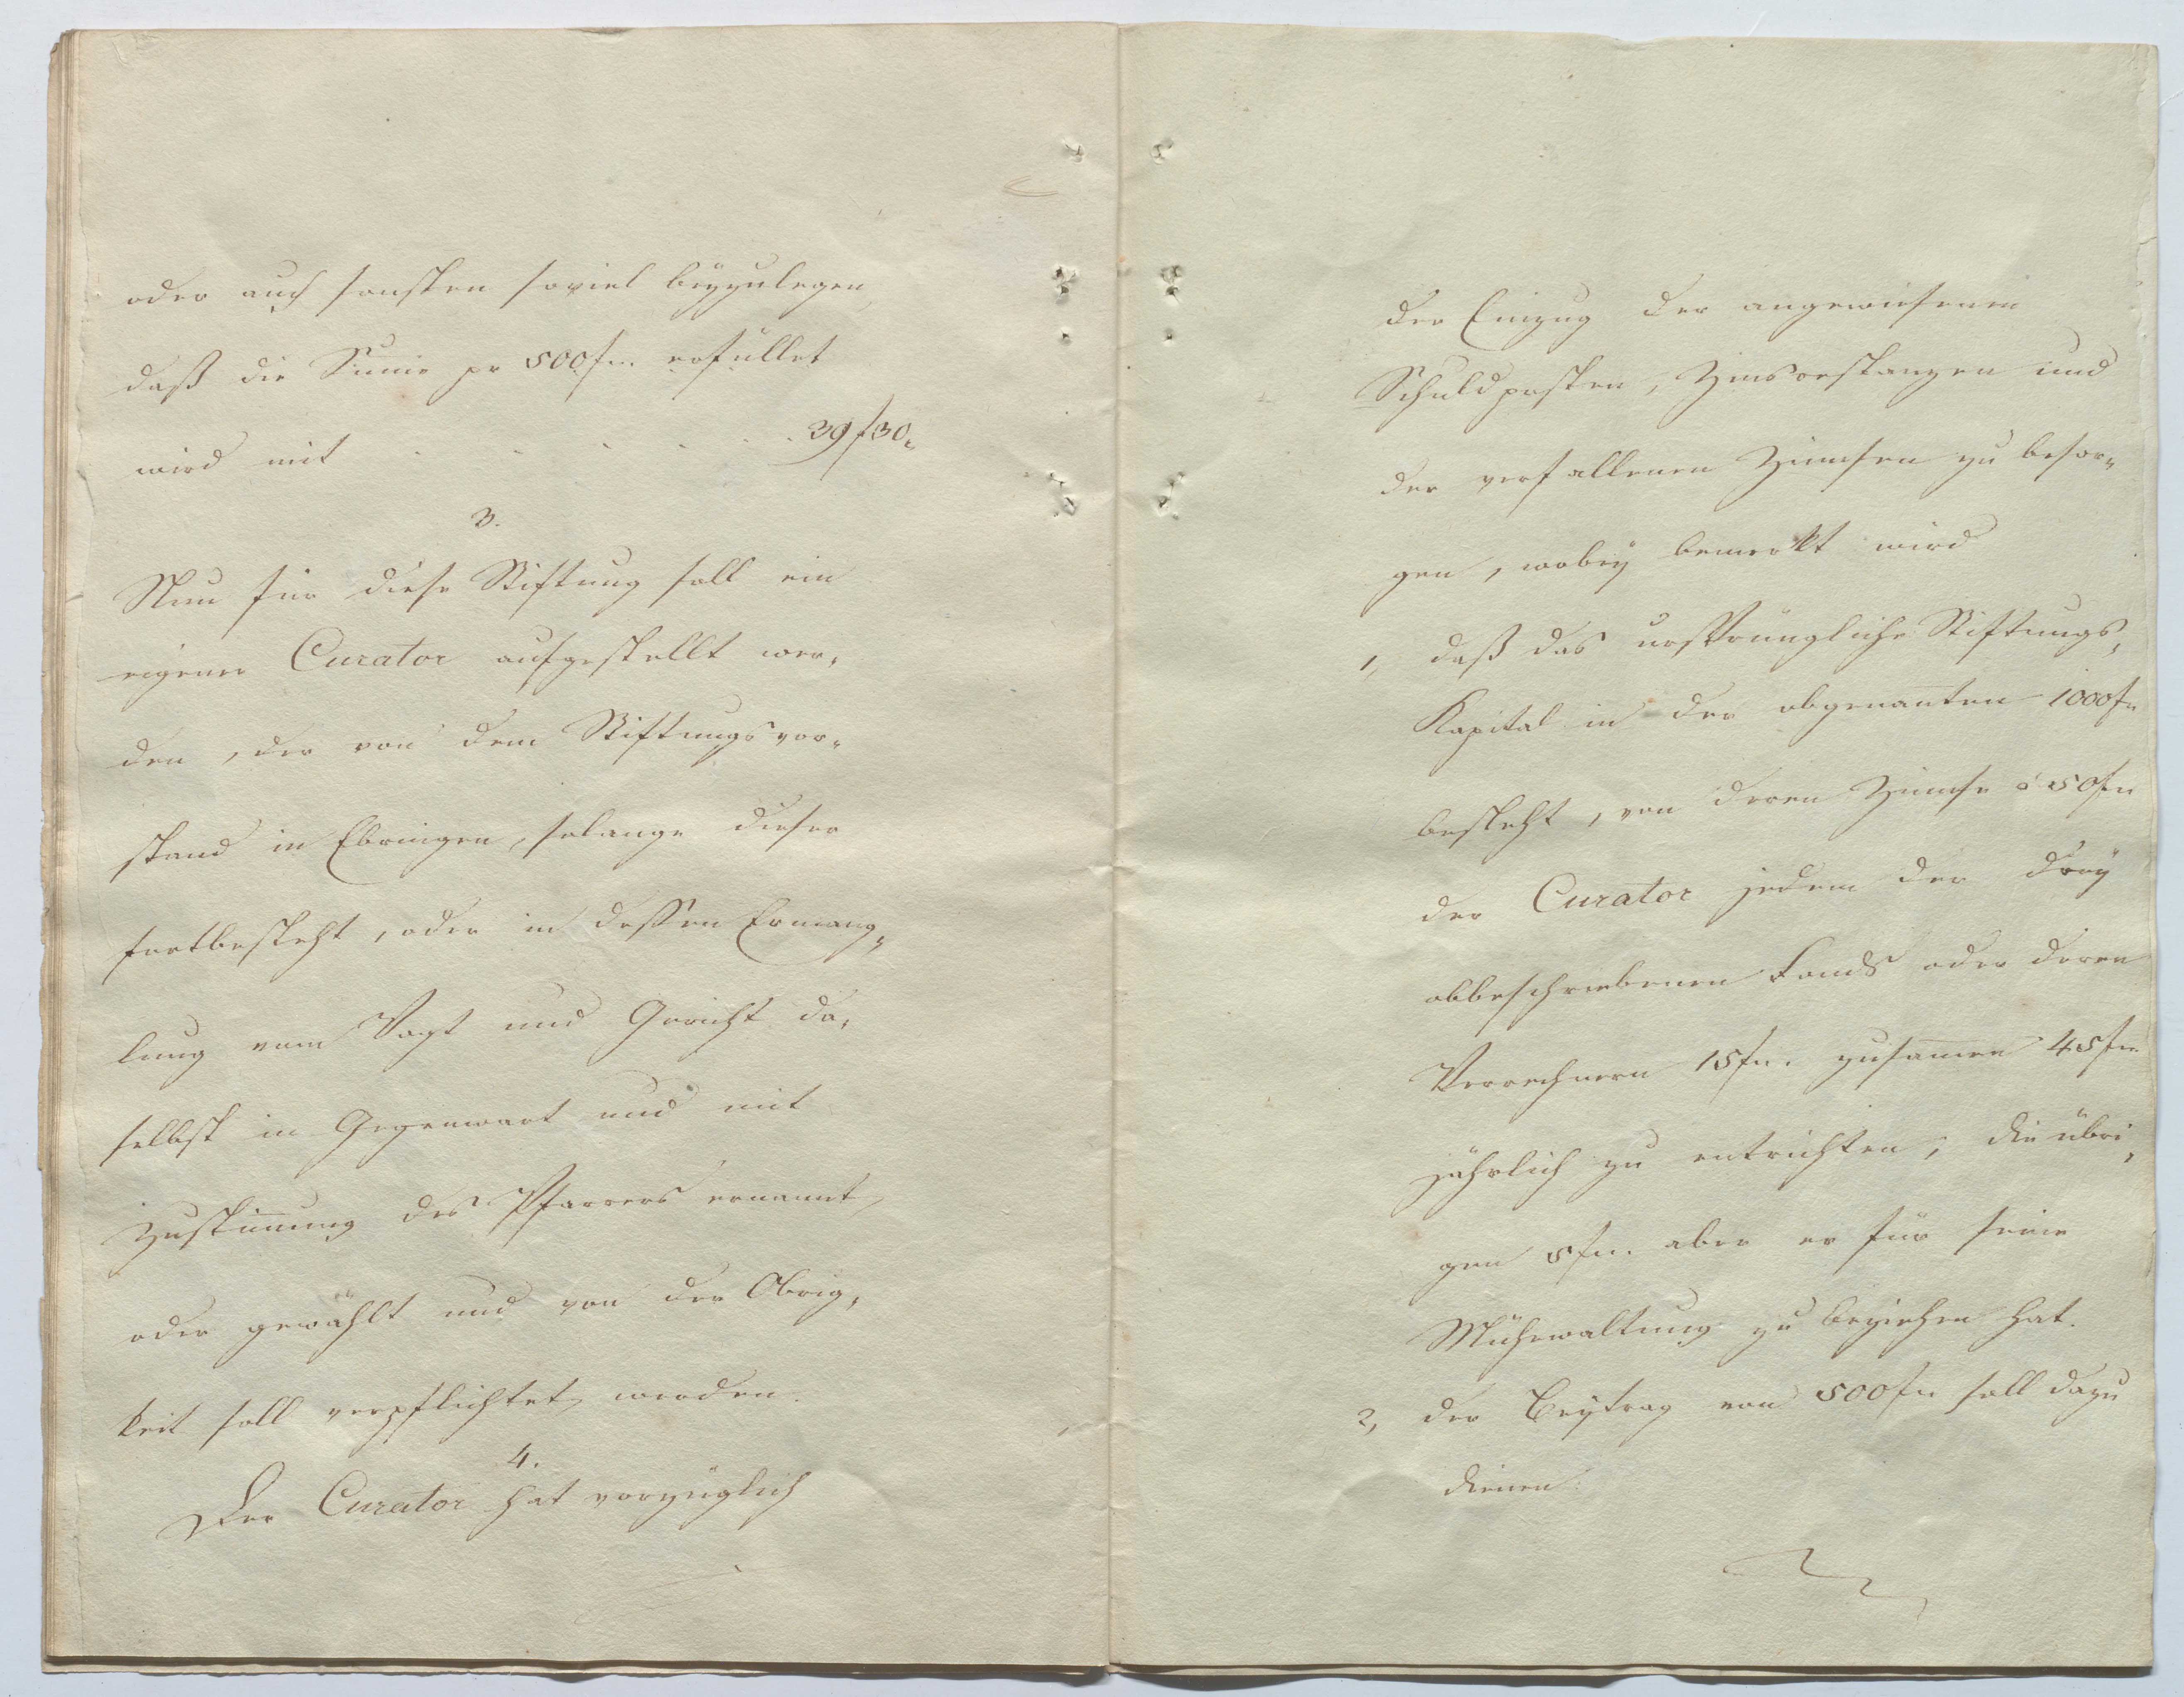 oder auch sonsten soviel beyzulegen,
daß die Sume pr 500 fn. erfüllet
wird mit . . . . . . 39 f 30.
3.
Nun für diese Stiftung soll ein
eigener Curator aufgestellt wer„
den, der von dem Stiftungsvor„
stand in Ebringen, solange dieser
fortbesteht, oder in dessen Ermang„
lung vom Vogt und Gericht da„
selbst in Gegenwart und mit
Zustim̅ung des Pfarrers ernannt,
oder gewählt und von der Obrig„
keit soll verpflichtet werden.
4.
Der Curator hat vorzüglich
den Einzug der angewiesenen
Schuldposten, und
der verfallenen Zinnsen zu besor„
gen, wobey bemerkt wird
1, daß das ursprüngliche Stiftungs„
Kapital in den obgenan̅ten 1000 fn
besteht, von deren Zinnse à 50 fn
der Curator jedem der drey
obbeschriebenen Fonds oder deren
Verrechnern 15 fn. zusam̅en 45 fn
jährlich zu entrichten, die übri„
gen 5 fn. aber er für seine
Mühewaltung zu beziehen hat.
2, der Beytrag von 500 fn soll dazu
dienen: